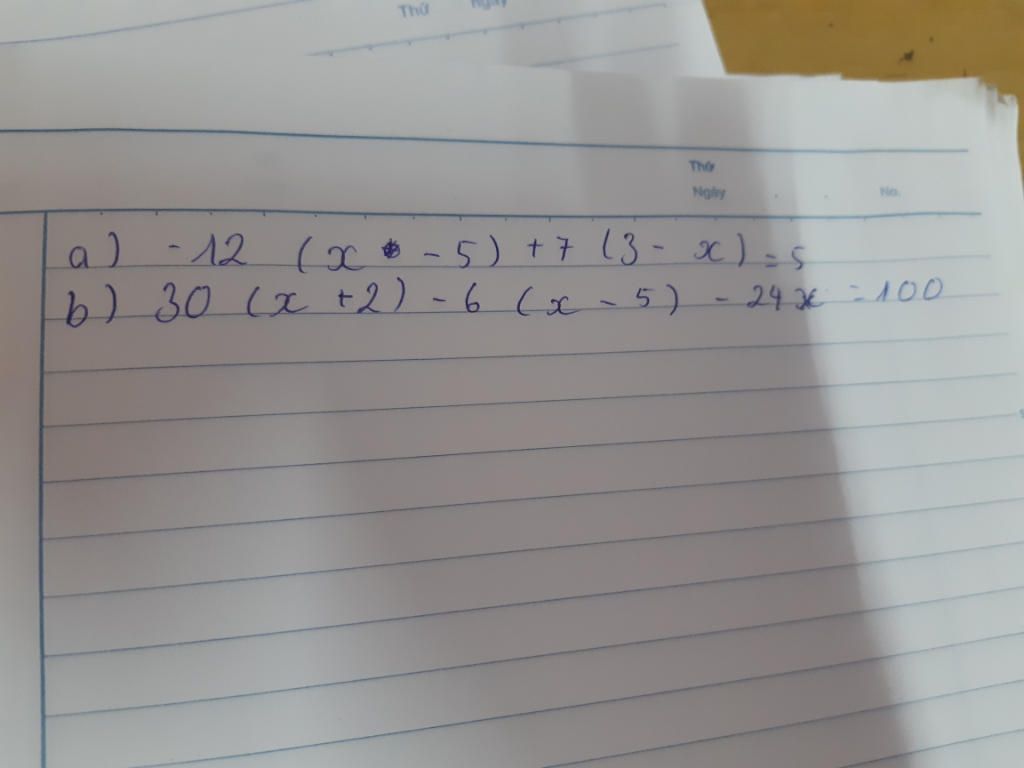 Thứ Ngày
Thứ
Ngày No.
a) -12 (x - 5) + 7 (3 - x) = 5
b) 30 (x + 2) - 6 (x - 5) - 24x = 100